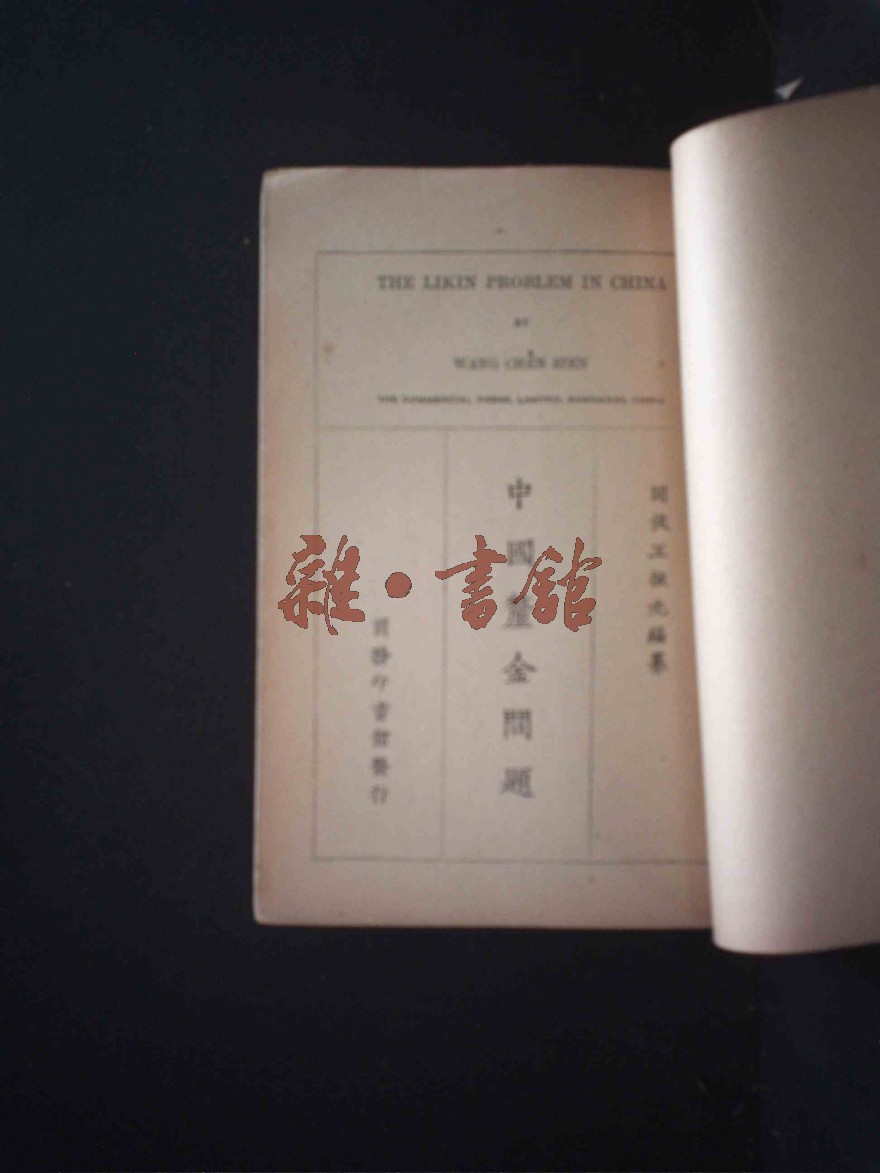 THE LIKIN PROBLEM IN CHINA
BY
WANG CHÊN SIEN
THE COMMERCIAL PRESS, LIMITED, SHANGHAI, CHINA
王振先編纂
中國釐金問題
商務印書館發行
雜·書館